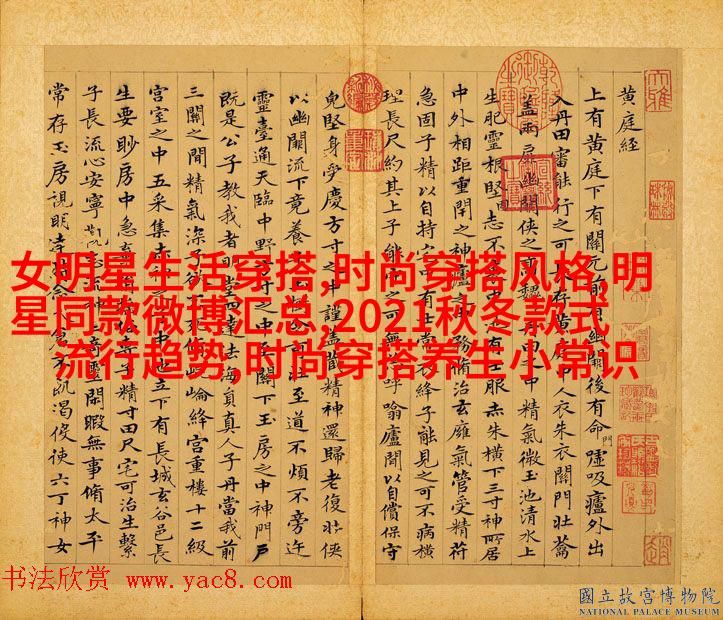 黄庭經
上有黄庭下有關元前有幽關後有命門噓吸廬外出
入丹田審能行之可長存黄庭中人衣朱衣關門壯蘥
蓋兩扉幽關俠之高魏丹田之中精氣微玉池清水上
生肥靈根堅志不衰中池有士服赤朱橫下三寸神所居
中外相距重閇之神廬之中務脩治玄廱氣管受精符
急固子精以自持宅中有士常衣絳子能見之可不病橫
理長尺約其上子能守之可無恙呼噏廬間以自償保守
兒堅身受慶方寸之中謹蓋藏精神還歸老復壯俠
以幽闕流下竟養子玉樹令可杖至道不煩不旁迕
靈臺通天臨中野方寸之中至關下玉房之中神門戶
既是公子教我者明堂四達法海員真人子丹當我前
三關之間精氣深子欲不死脩崑崙絳宮重樓十二級
宮室之中五采集赤神之子中池立下有長城玄谷邑長
生要眇房中急棄子精寸田尺宅可治生繫
子長流心安寧觀志流神三奇靈閒暇無事脩太平
常存玉房視明達時念大倉不飢渴役使六丁神女
女明星生活穿搭,时尚穿搭风格,明
星同款微博汇总,2021秋冬款式
流行趋势,时尚穿搭养生小常识
书法欣赏 www.yac8.com
國立故宮博物院
NATIONAL PALACE MUSEUM